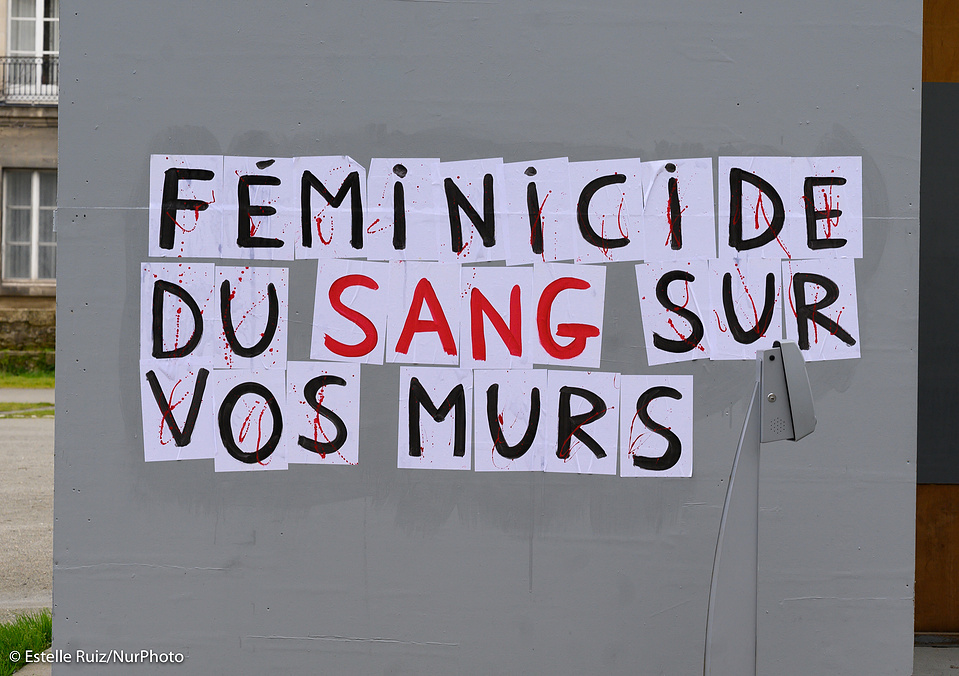 FÉMiNiCiDE
DU SANG SUR
VOS MURS
© Estelle Ruiz/NurPhoto